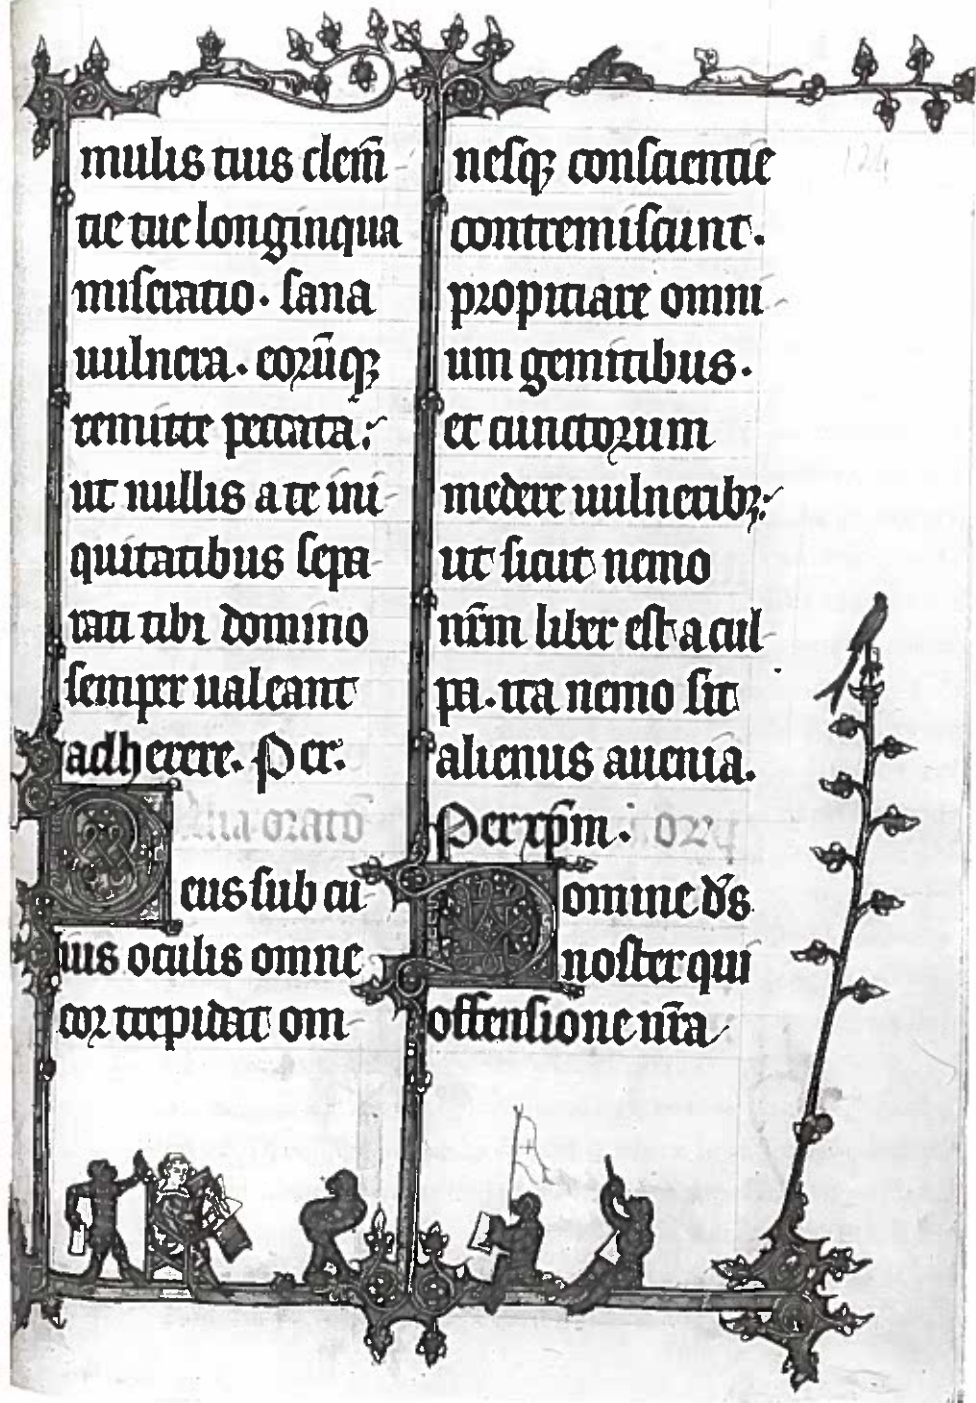 mulis tuis clem̃
tie tue longinqua
miſeratio. ſana
uulnera. eorũq;
remitte peccata.
ut nullis a te ini
quitatibus ſepa
rati tibi domino
ſemper ualeant
adherere. Per.
Alia oratõ
Deus ſub cu
ius oculis omne
cor trepidat om
neſq; conſcientie
contremiſcunt.
propitiare omni
um gemitibus.
et cunctorum
medere uulnerib;
ut ſicut nemo
nr̃m liber eſt a cul
pa. ita nemo ſit
alienus a uenia.
Per xp̃m.
Domine ds̃
noſter qui
offenſione nr̃a
124